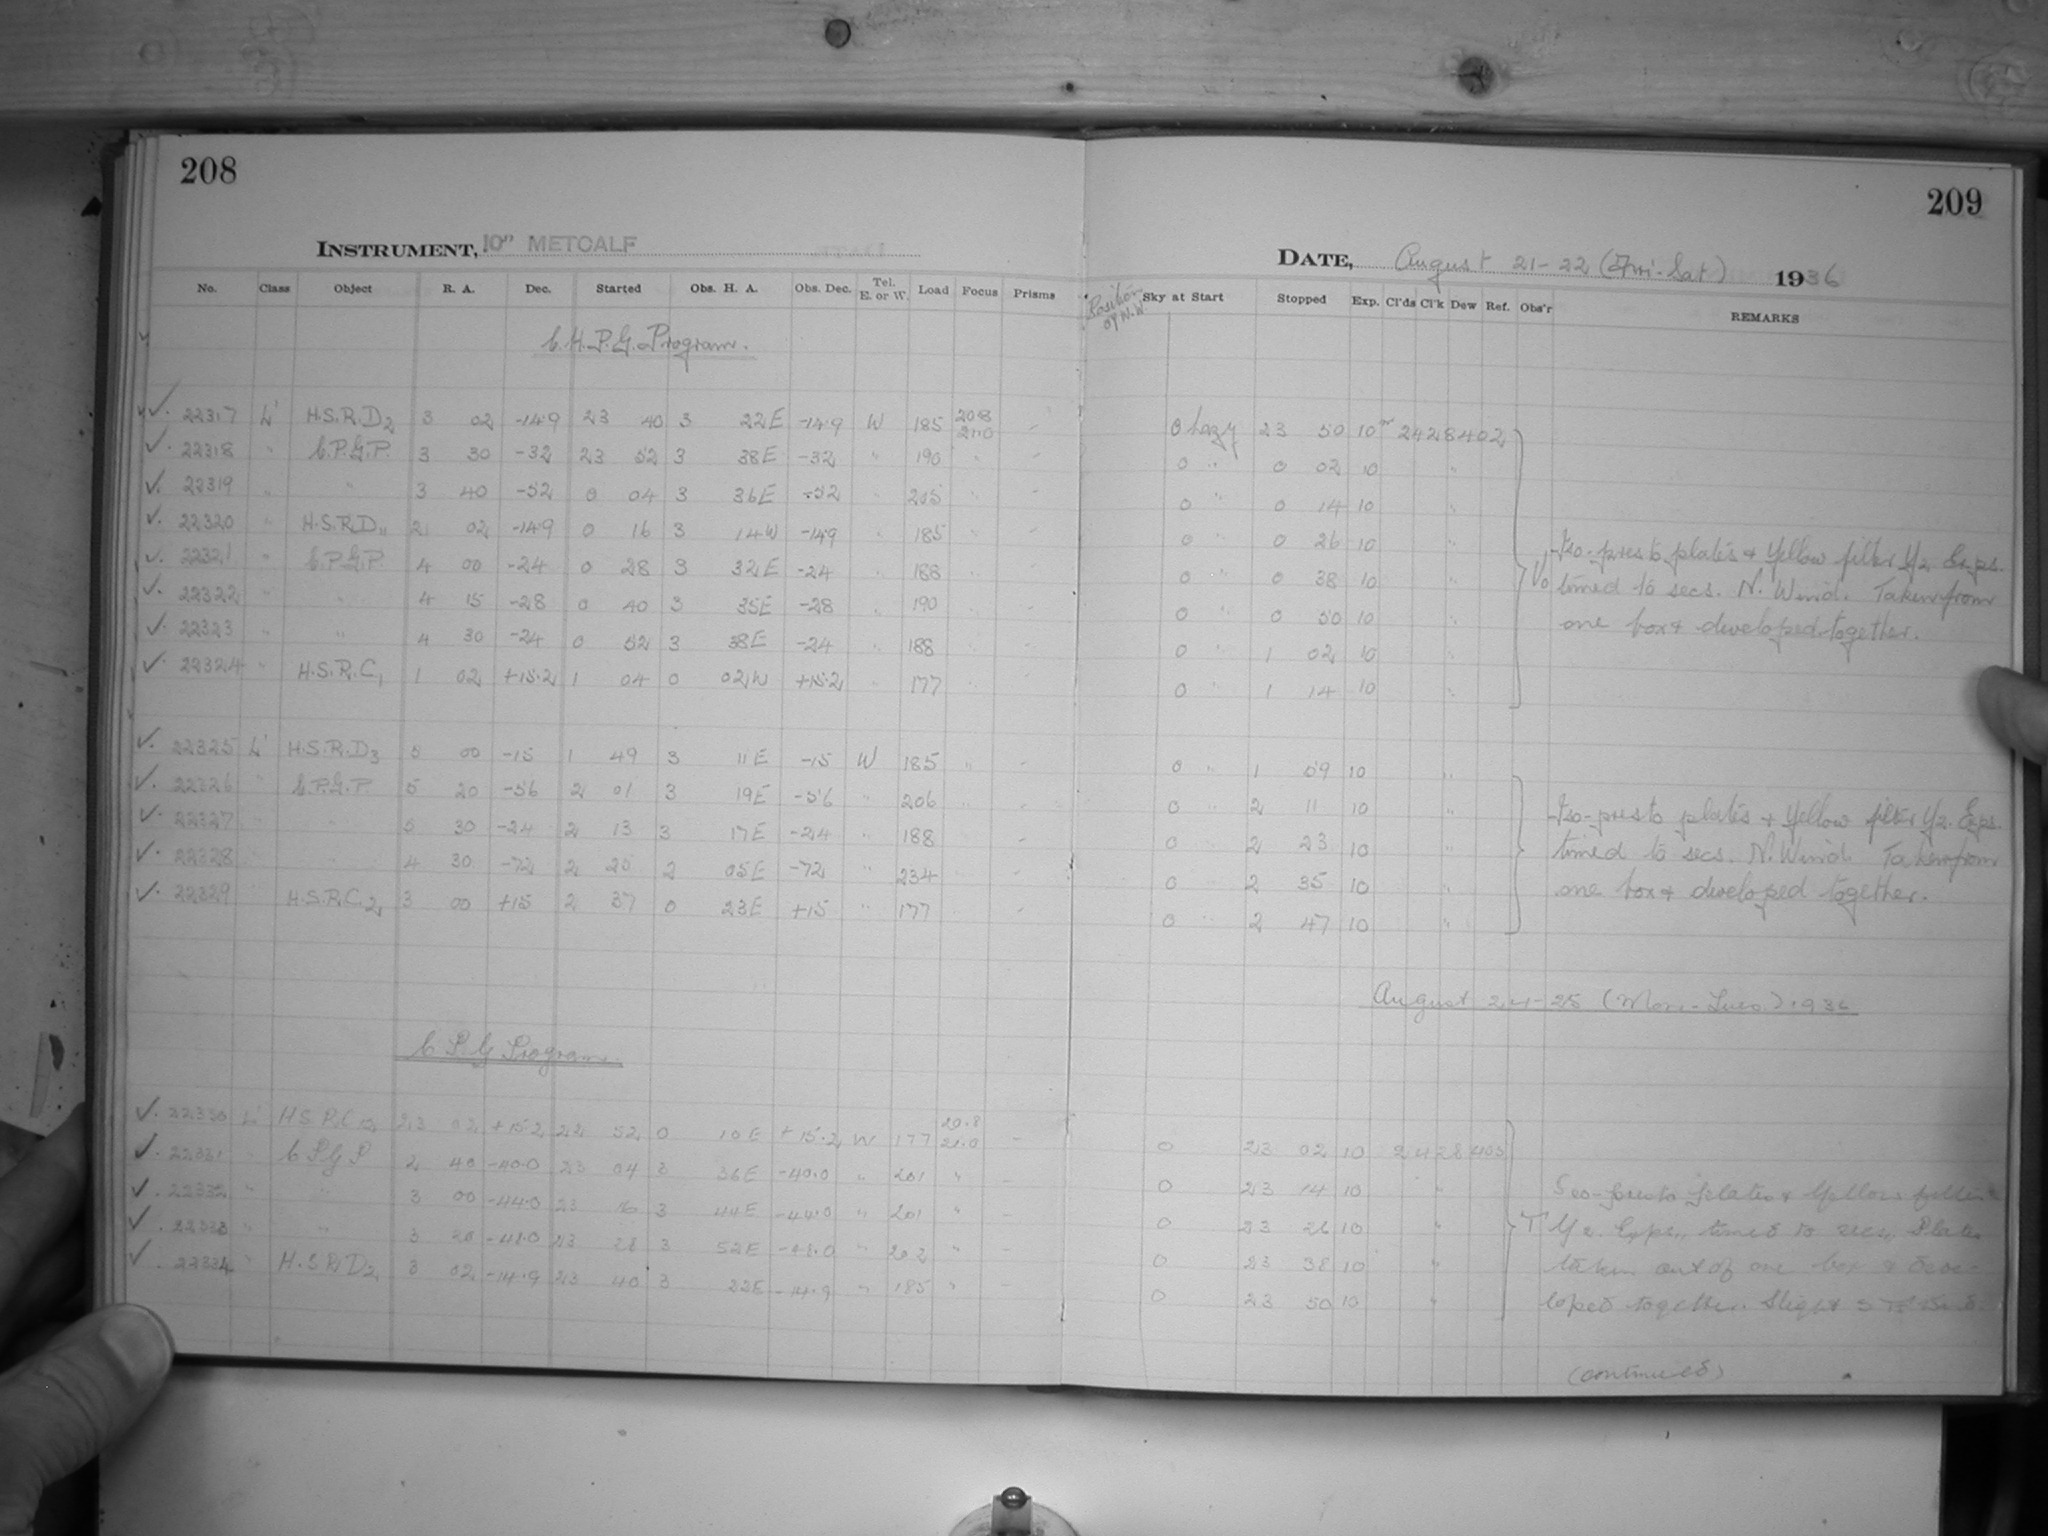 208
INSTRUMENT, 10" METCALF
No. Class Object R. A. Dec. Started Obs. H. A. Obs. Dec. Tel. E. or W. Load Focus Prisms
C.H.P.G. Program.
22317 L' H.S.R.D2 3 02 -14.9 23 40 3 22E -14.9 W 185 20.8 21.0 -
22318 " C.P.G.P. 3 30 -32 23 52 3 38E -32 " 190 " -
22319 " " 3 40 -52 0 04 3 36E -52 " 205 " -
22320 " H.S.R.D11 21 02 -14.9 0 16 3 14W -14.9 " 185 " -
22321 " C.P.G.P. 4 00 -24 0 28 3 32E -24 " 188 " -
22322 " " 4 15 -28 0 40 3 35E -28 " 190 " -
22323 " " 4 30 -24 0 52 3 38E -24 " 188 " -
22324 " H.S.R.C1 1 02 +15.2 1 04 0 02W +15.2 " 177 " -
22325 L' H.S.R.D3 5 00 -15 1 49 3 11E -15 W 185 " -
22326 " C.P.G.P. 5 20 -56 2 01 3 19E -56 " 206 " -
22327 " " 5 30 -24 2 13 3 17E -24 " 188 " -
22328 " " 4 30 -72 2 25 2 05E -72 " 234 " -
22329 " H.S.R.C2 3 00 +15 2 37 0 23E +15 " 177 " -
C P.G Program.
22330 L' H.S.R.C12 23 02 +15.2 22 52 0 10E +15.2 W 177 20.8 21.0 -
22331 " C P G P 2 40 -40.0 23 04 3 36E -40.0 " 201 " -
22332 " " 3 00 -44.0 23 16 3 44E -44.0 " 201 " -
22333 " " 3 20 -48.0 23 28 3 52E -48.0 " 202 " -
22334 " H.S.R.D2 3 02 -14.9 23 40 3 22E -14.9 " 185 " -
209
DATE, August 21-22 (Fri-Sat) 1936
Position of N.W. Sky at Start Stopped Exp. Cl'ds Cl'k Dew Ref. Obs'r REMARKS
0 hazy 23 50 10m 2428402
0 " 0 02 10 "
0 " 0 14 10 "
0 " 0 26 10 "
0 " 0 38 10 "
0 " 0 50 10 "
0 " 1 02 10 "
0 " 1 14 10 "
Iso-presto plates & Yellow filter Y2. Exps.
timed to secs. N. Wind. Taken from
one box & developed together.
0 " 1 59 10 "
0 " 2 11 10 "
0 " 2 23 10 "
0 " 2 35 10 "
0 " 2 47 10 "
Iso-presto plates & Yellow filter Y2. Exps.
timed to secs. N. Wind. Taken from
one box & developed together.
August 24-25 (Mon-Tues.) 1936
0 23 02 10 2428405
0 23 14 10 "
0 23 26 10 "
0 23 38 10 "
0 23 50 10 "
Iso-presto plates & Yellow filter
T Y2. Exps. timed to secs. Plates
taken out of one box & deve-
loped together. Slight
(continued)